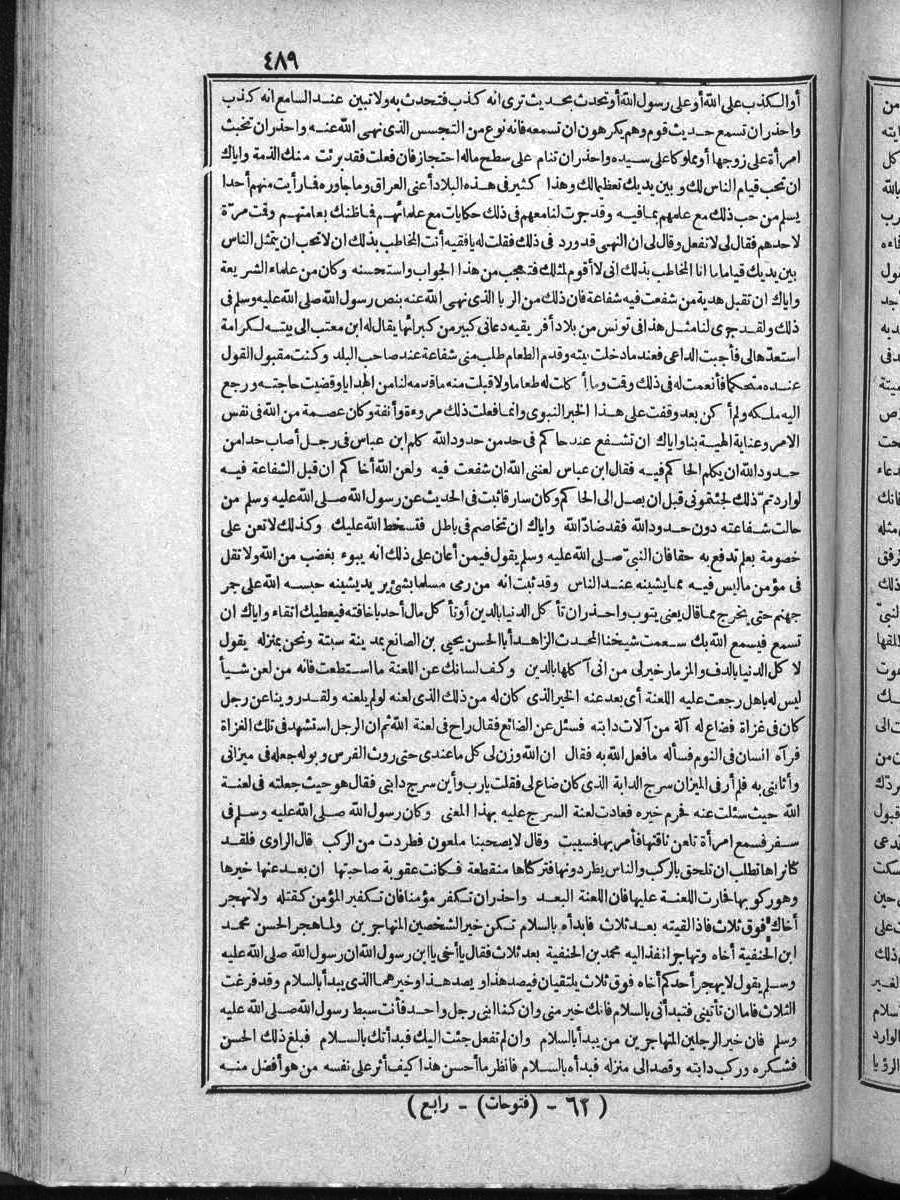 ٤٨٩
أو الكذب على الله أو على رسول الله أو تحدث بحديث ترى انه كذب فتحدث به ولا تبين عند السامع انه كذب
واحذر ان تسمع حديث قوم وهم يكرهون ان تسمعه فانه نوع من التجسس الذى نهى الله عنه واحذر ان تخبث
امرأة على زوجها أو مملوكا على سيده واحذر ان تنام على سطح ماله احتجاز فان فعلت فقد برئت منك الذمة واياك
ان تحب قيام الناس لك وبين يديك تعظيما لك وهذا كثير فى هذه البلاد أعنى العراق وما جاوره فما رأيت منهم أحدا
يسلم من حب ذلك مع علمهم بما فيه وقد جرت لنا معهم فى ذلك حكايات مع علمائهم فما ظنك بعامتهم وقت مرّة
لاحدهم فقال لى لا تفعل وقال لى ان النهى قد ورد فى ذلك فقلت له يا فقيه أنت المخاطب بذلك ان لا تحب ان يتمثل الناس
بين يديك قياما ما انا المخاطب بذلك انى لا أقوم لمثلك فتعجب من هذا الجواب واستحسنه وكان من علماء الشريعة
واياك ان تقبل هدية من شفعت فيه شفاعة فان ذلك من الربا الذى نهى الله عنه بنص رسول الله صلى الله عليه وسلم فى
ذلك ولقد جرى لنا مثل هذا فى تونس من بلاد أفريقيه دعانى كبير من كبرائها يقال له ابن معتب الى بيته لكرامة
استعدّها لى فأجبت الداعى فعندما دخلت بيته وقدم الطعام طلب منى شفاعة عند صاحب البلد وكنت مقبول القول
عنده متحكما فأنعمت له فى ذلك وقت وما أكلت له طعاما ولا قبلت منه ما قدمه لنا من الهدايا وقضيت حاجته ورجع
اليه ملكه ولم أكن بعد وقفت على هذا الخبر النبوى وانما فعلت ذلك مروءة وأنفة وكان عصمة من الله فى نفس
الامر وعناية الهية بنا واياك ان تشفع عند حاكم فى حد من حدود الله كلم ابن عباس فى رجل أصاب حدا من
حدود الله ان يكلم الحاكم فيه فقال ابن عباس لعننى الله ان شفعت فيه ولعن الله الحاكم ان قبل الشفاعة فيه
لو اردتم ذلك لجئتمونى قبل ان يصل الى الحاكم وكان سارقا ثبت فى الحديث عن رسول الله صلى الله عليه وسلم من
حالت شفاعته دون حدود الله فقد ضادّ الله واياك ان تخاصم فى باطل فتسخط الله عليك وكذلك لا تعن على
خصومة بعلم تدفع به حقا فان النبىّ صلى الله عليه وسلم يقول فيمن أعان على ذلك انه يبوء بغضب من الله ولا تقل
فى مؤمن ما ليس فيه مما يشينه عند الناس وقد ثبت انه من رمى مسلما بشئ يريد يشينه حبسه الله على جسر
جهنم حتى يخرج مما قال يعنى يتوب واحذر ان تأكل الدنيا بالدين أو تأكل مال أحد باخافته فيعطيك اتقاء واياك ان
تسمع فيسمع الله بك سمعت شيخنا المحدث الزاهد أبا الحسن يحيى بن الصانع بمدينة سبتة ونحن بمنزله يقول
لا كل الدنيا بالدف والمزمار خير لى من انى آكلها بالدين وكف لسانك عن اللعنة ما استطعت فانه من لعن شيأ
ليس له باهل رجعت عليه اللعنة أى بعد عنه الخير الذى كان له من ذلك الذى لعنه لو لم يلعنه ولقد روينا عن رجل
كان فى غزاة فضاع له آلة من آلات دابته فسئل عن الضائع فقال راح فى لعنة الله ثم ان الرجل استشهد فى تلك الغزاة
فرآه انسان فى النوم فسأله ما فعل الله به فقال ان الله وزن لى كل ما عندى حتى روث الفرس وبوله جعله فى ميزانى
وأثابنى به فلم أر فى الميزان سرج الدابة الذى كان ضاع لى فقلت يارب وأين سرج دابتى فقال هو حيث جعلته فى لعنة
الله حيث سئلت عنه فحرم خيره فعادت لعنة السرج عليه بهذا المعنى وكان رسول الله صلى الله عليه وسلم فى
سفر فسمع امرأة تلعن ناقتها فأمر بها فسيبت وقال لا يصحبنا ملعون فطردت من الركب قال الراوى فلقد
كنا نراها تطلب ان تلحق بالركب والناس يطردونها فتركناها منقطعة فكانت عقوبة صاحبتها ان بعد عنها خيرها
وهو ركوبها فحارت اللعنة عليها فان اللعنة البعد واحذر ان تكفر مؤمنا فان تكفير المؤمن كقتله ولا تهجر
أخاك فوق ثلاث فاذا لقيته بعد ثلاث فابدأه بالسلام تكن خير الشخصين المتهاجرين ولما هجر الحسن محمد
ابن الحنفية أخاه وتهاجرا نفذ اليه محمد بن الحنفية بعد ثلاث فقال يا أخى يا ابن رسول الله ان رسول الله صلى الله عليه
وسلم يقول لا يهجر أحدكم أخاه فوق ثلاث يلتقيان فيصد هذا ويصد هذا وخيرهما الذى يبدأ بالسلام وقد فرغت
الثلاث فاما ان تأتينى فتبدأنى بالسلام فانك خير منى وان كنا ابنى رجل واحد فأنت سبط رسول الله صلى الله عليه
وسلم فان خير الرجلين المتهاجرين من يبدأ بالسلام وان لم تفعل جئت اليك فبدأتك بالسلام فبلغ ذلك الحسن
فشكره وركب دابته وقصد الى منزله فبدأه بالسلام فانظر ما أحسن هذا كيف أثر على نفسه من هو أفضل منه
( ٦٢ - (فتوحات) - رابع )